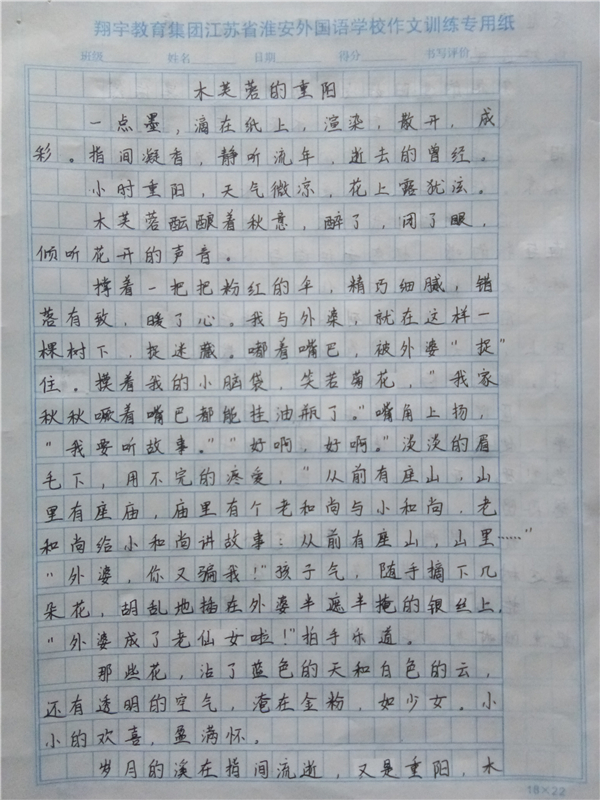 翔宇教育集团江苏省淮安外国语学校作文训练专用纸
班级 姓名 日期 得分 书写评价
木芙蓉的重阳
一点墨，滴在纸上，渲染，散开，成
彩。指间凝香，静听流年，逝去的曾经。
小时重阳，天气微凉，花上露犹泫。
木芙蓉酝酿着秋意，醉了，闭了眼，
倾听花开的声音。
撑着一把把粉红的伞，精巧细腻，错
落有致，暖了心。我与外婆，就在这样一
棵树下，捉迷藏。嘟着嘴巴，被外婆“捉”
住。摸着我的小脑袋，笑若菊花，“我家
秋秋噘着嘴巴都能挂油瓶了。”嘴角上扬，
“我要听故事。”“好啊，好啊。”淡淡的眉
毛下，用不完的疼爱，“从前有座山，山
里有座庙，庙里有个老和尚与小和尚，老
和尚给小和尚讲故事：从前有座山，山里……”
“外婆，你又骗我！”孩子气，随手摘下几
朵花，胡乱地插在外婆半遮半掩的银丝上。
“外婆成了老仙女啦！”拍手乐道。
那些花，沾了蓝色的天和白色的云，
还有透明的空气，淹在金粉，如少女。小
小的欢喜，盈满怀。
岁月的溪在指间流逝，又是重阳，木
18×22